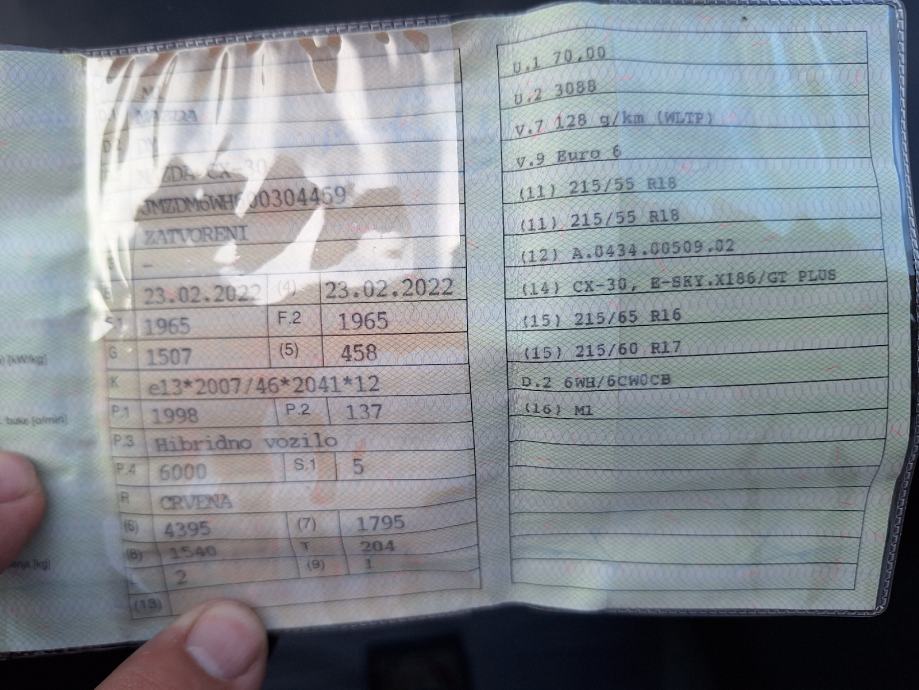 D.1 MAZDA
D.2 DM
MAZDA CX-30
JMZDM6WH 00304469
ZATVORENI
-
B 23.02.2022 (4) 23.02.2022
1965 F.2 1965
G 1507 (5) 458
K e13*2007/46*2041*12
P.1 1998 P.2 137
P.3 Hibridno vozilo
P.4 6000 S.1 5
R CRVENA
(6) 4395 (7) 1795
(8) 1540 T 204
2 (9) 1
(13)
[kW/kg]
buke [o/min]
[kg]
U.1 70,00
U.2 3088
V.7 128 g/km (WLTP)
V.9 Euro 6
(11) 215/55 R18
(11) 215/55 R18
(12) A.0434.00509.02
(14) CX-30, E-SKY.X186/GT PLUS
(15) 215/65 R16
(15) 215/60 R17
D.2 6WH/6CW0CB
(16) M1